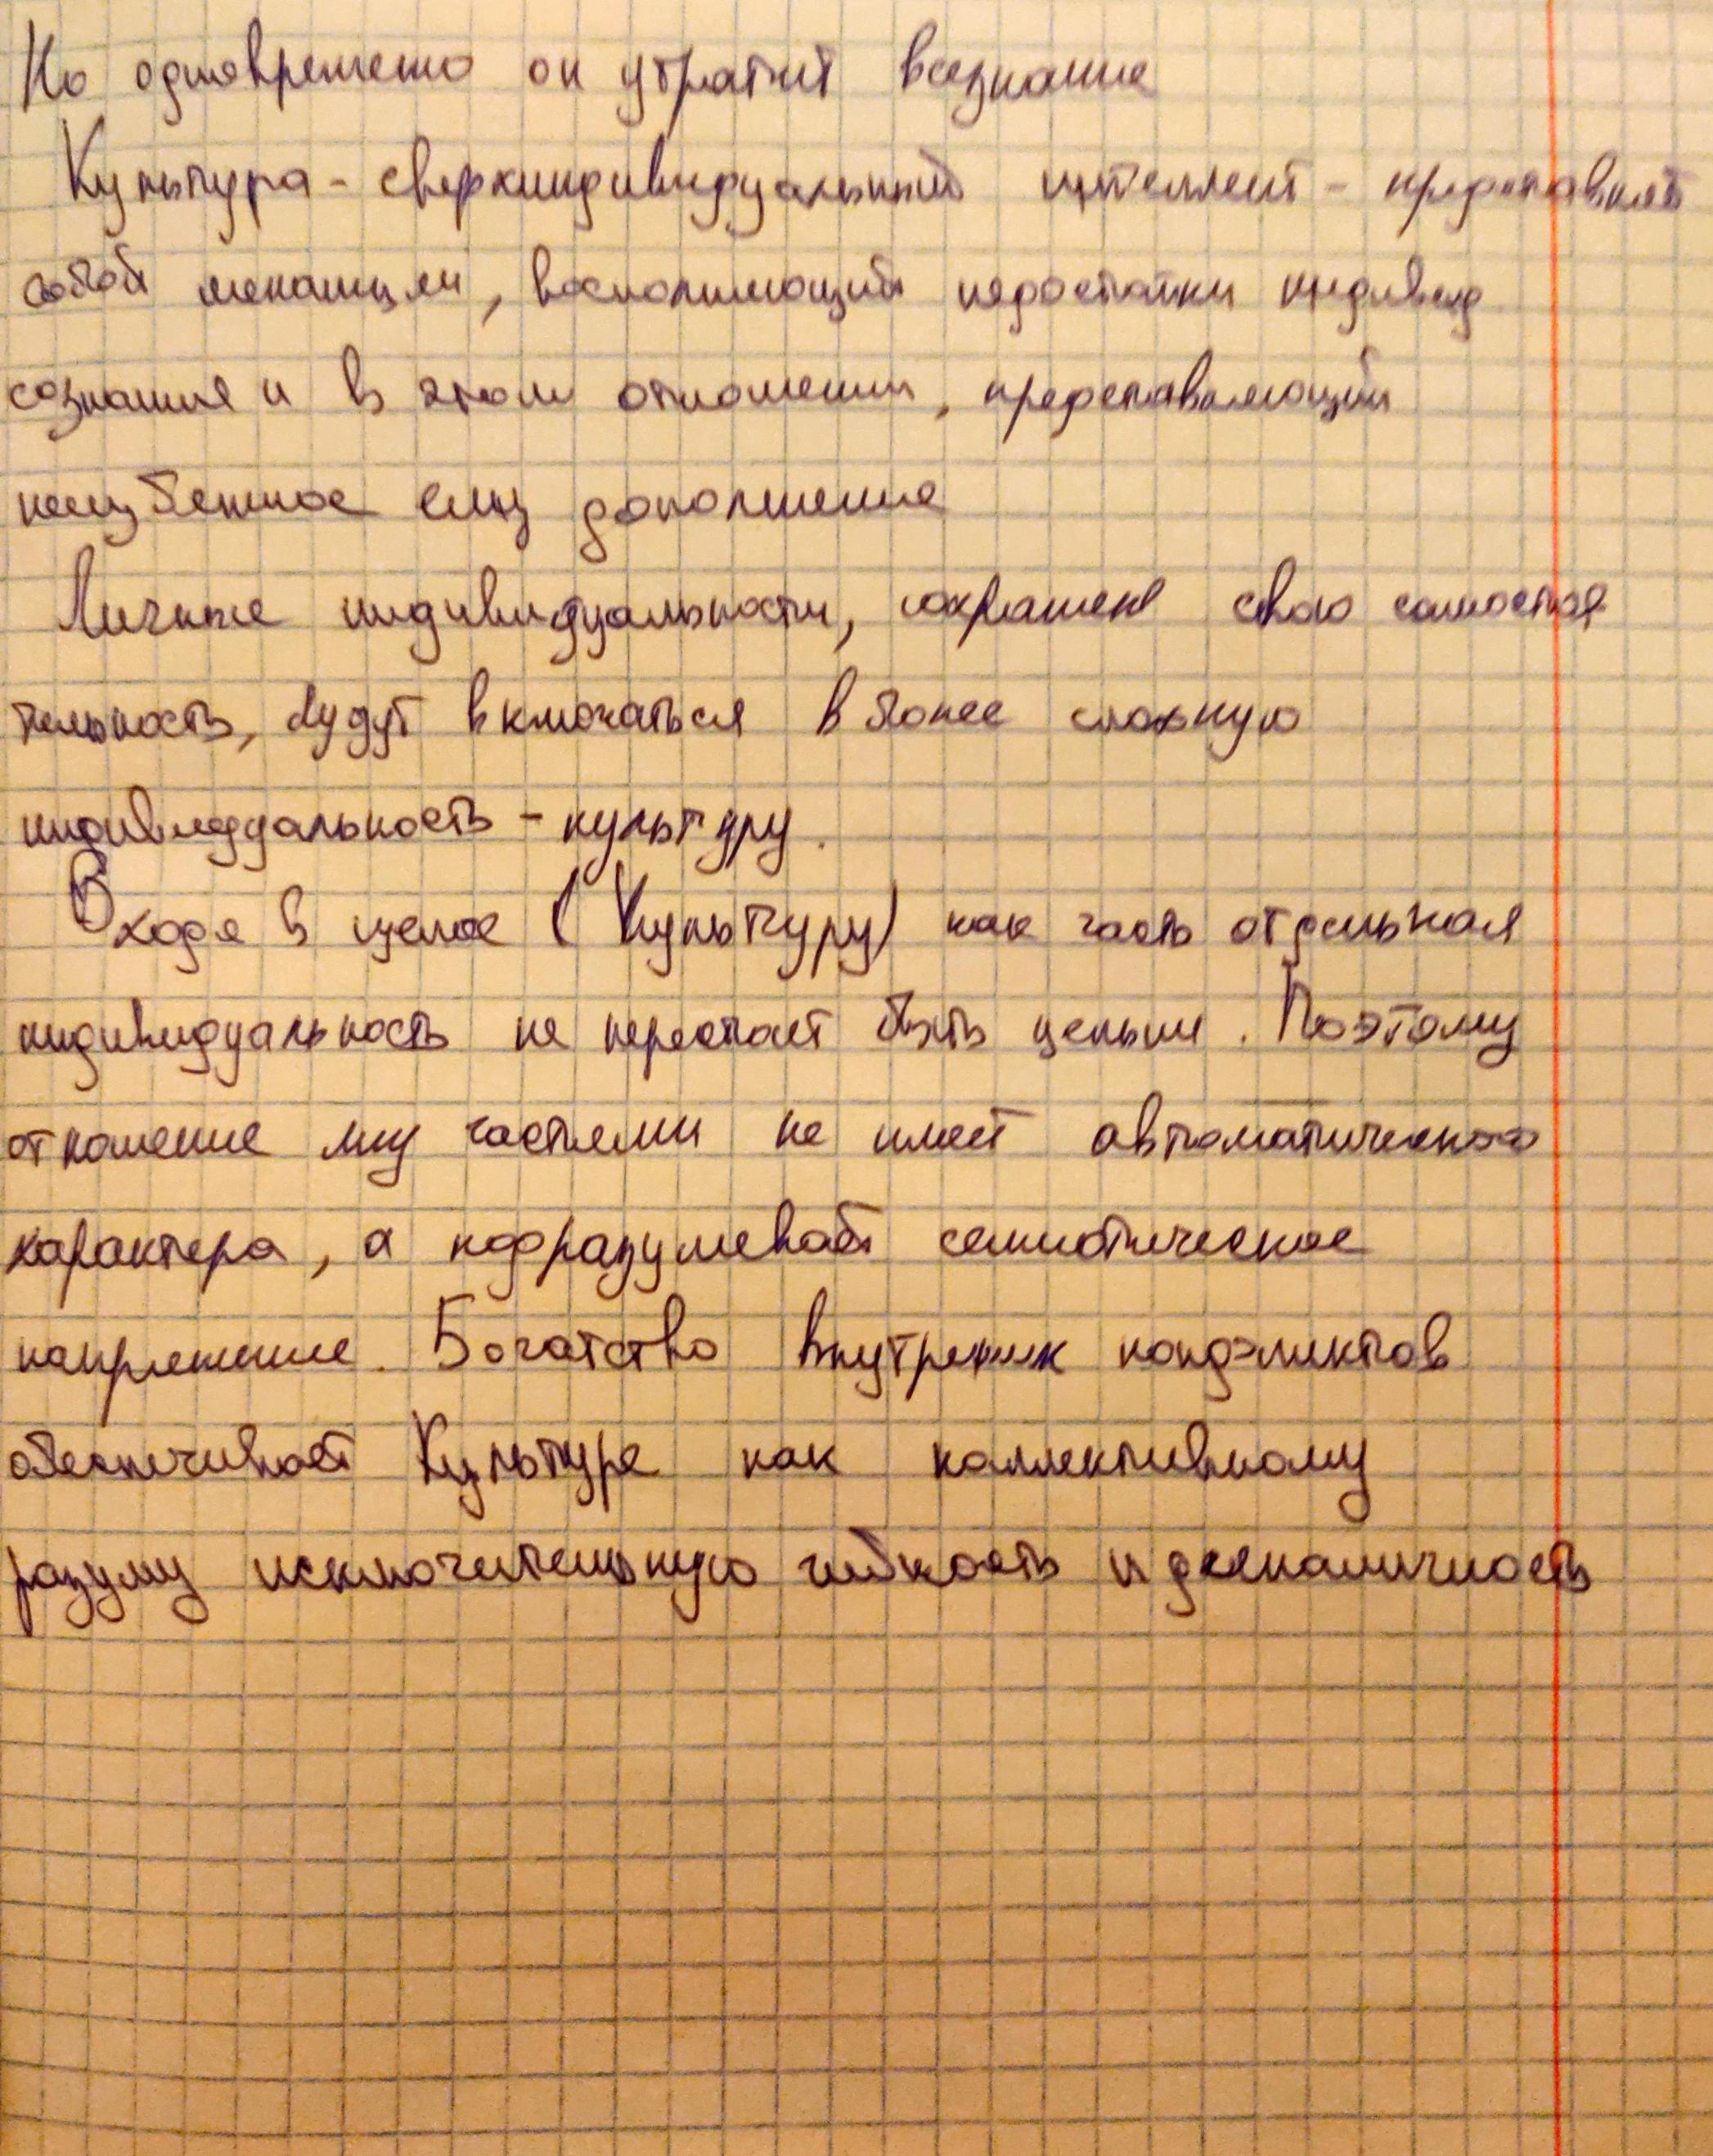 Но одновременно он утратит всезнание
Культура - сверхиндивидуальный интеллект - представляет
собой механизм, восполняющий недостатки индивид.
сознания и в этом отношении, представляющий
неизбежное ему дополнение
Личные индивидуальности, сохраняя свою самостоя
тельность, будут включаться в более сложную
индивидуальность - культуру.
Входя в целое (Культуру) как часть отдельная
индивидуальность не перестает быть целым. Поэтому
отношение м/у частями не имеет автоматического
характера, а подразумевает семиотическое
напряжение. Богатство внутрених конфликтов
обеспечивает Культуре как коллективному
разуму исключительную гибкость и динамичность